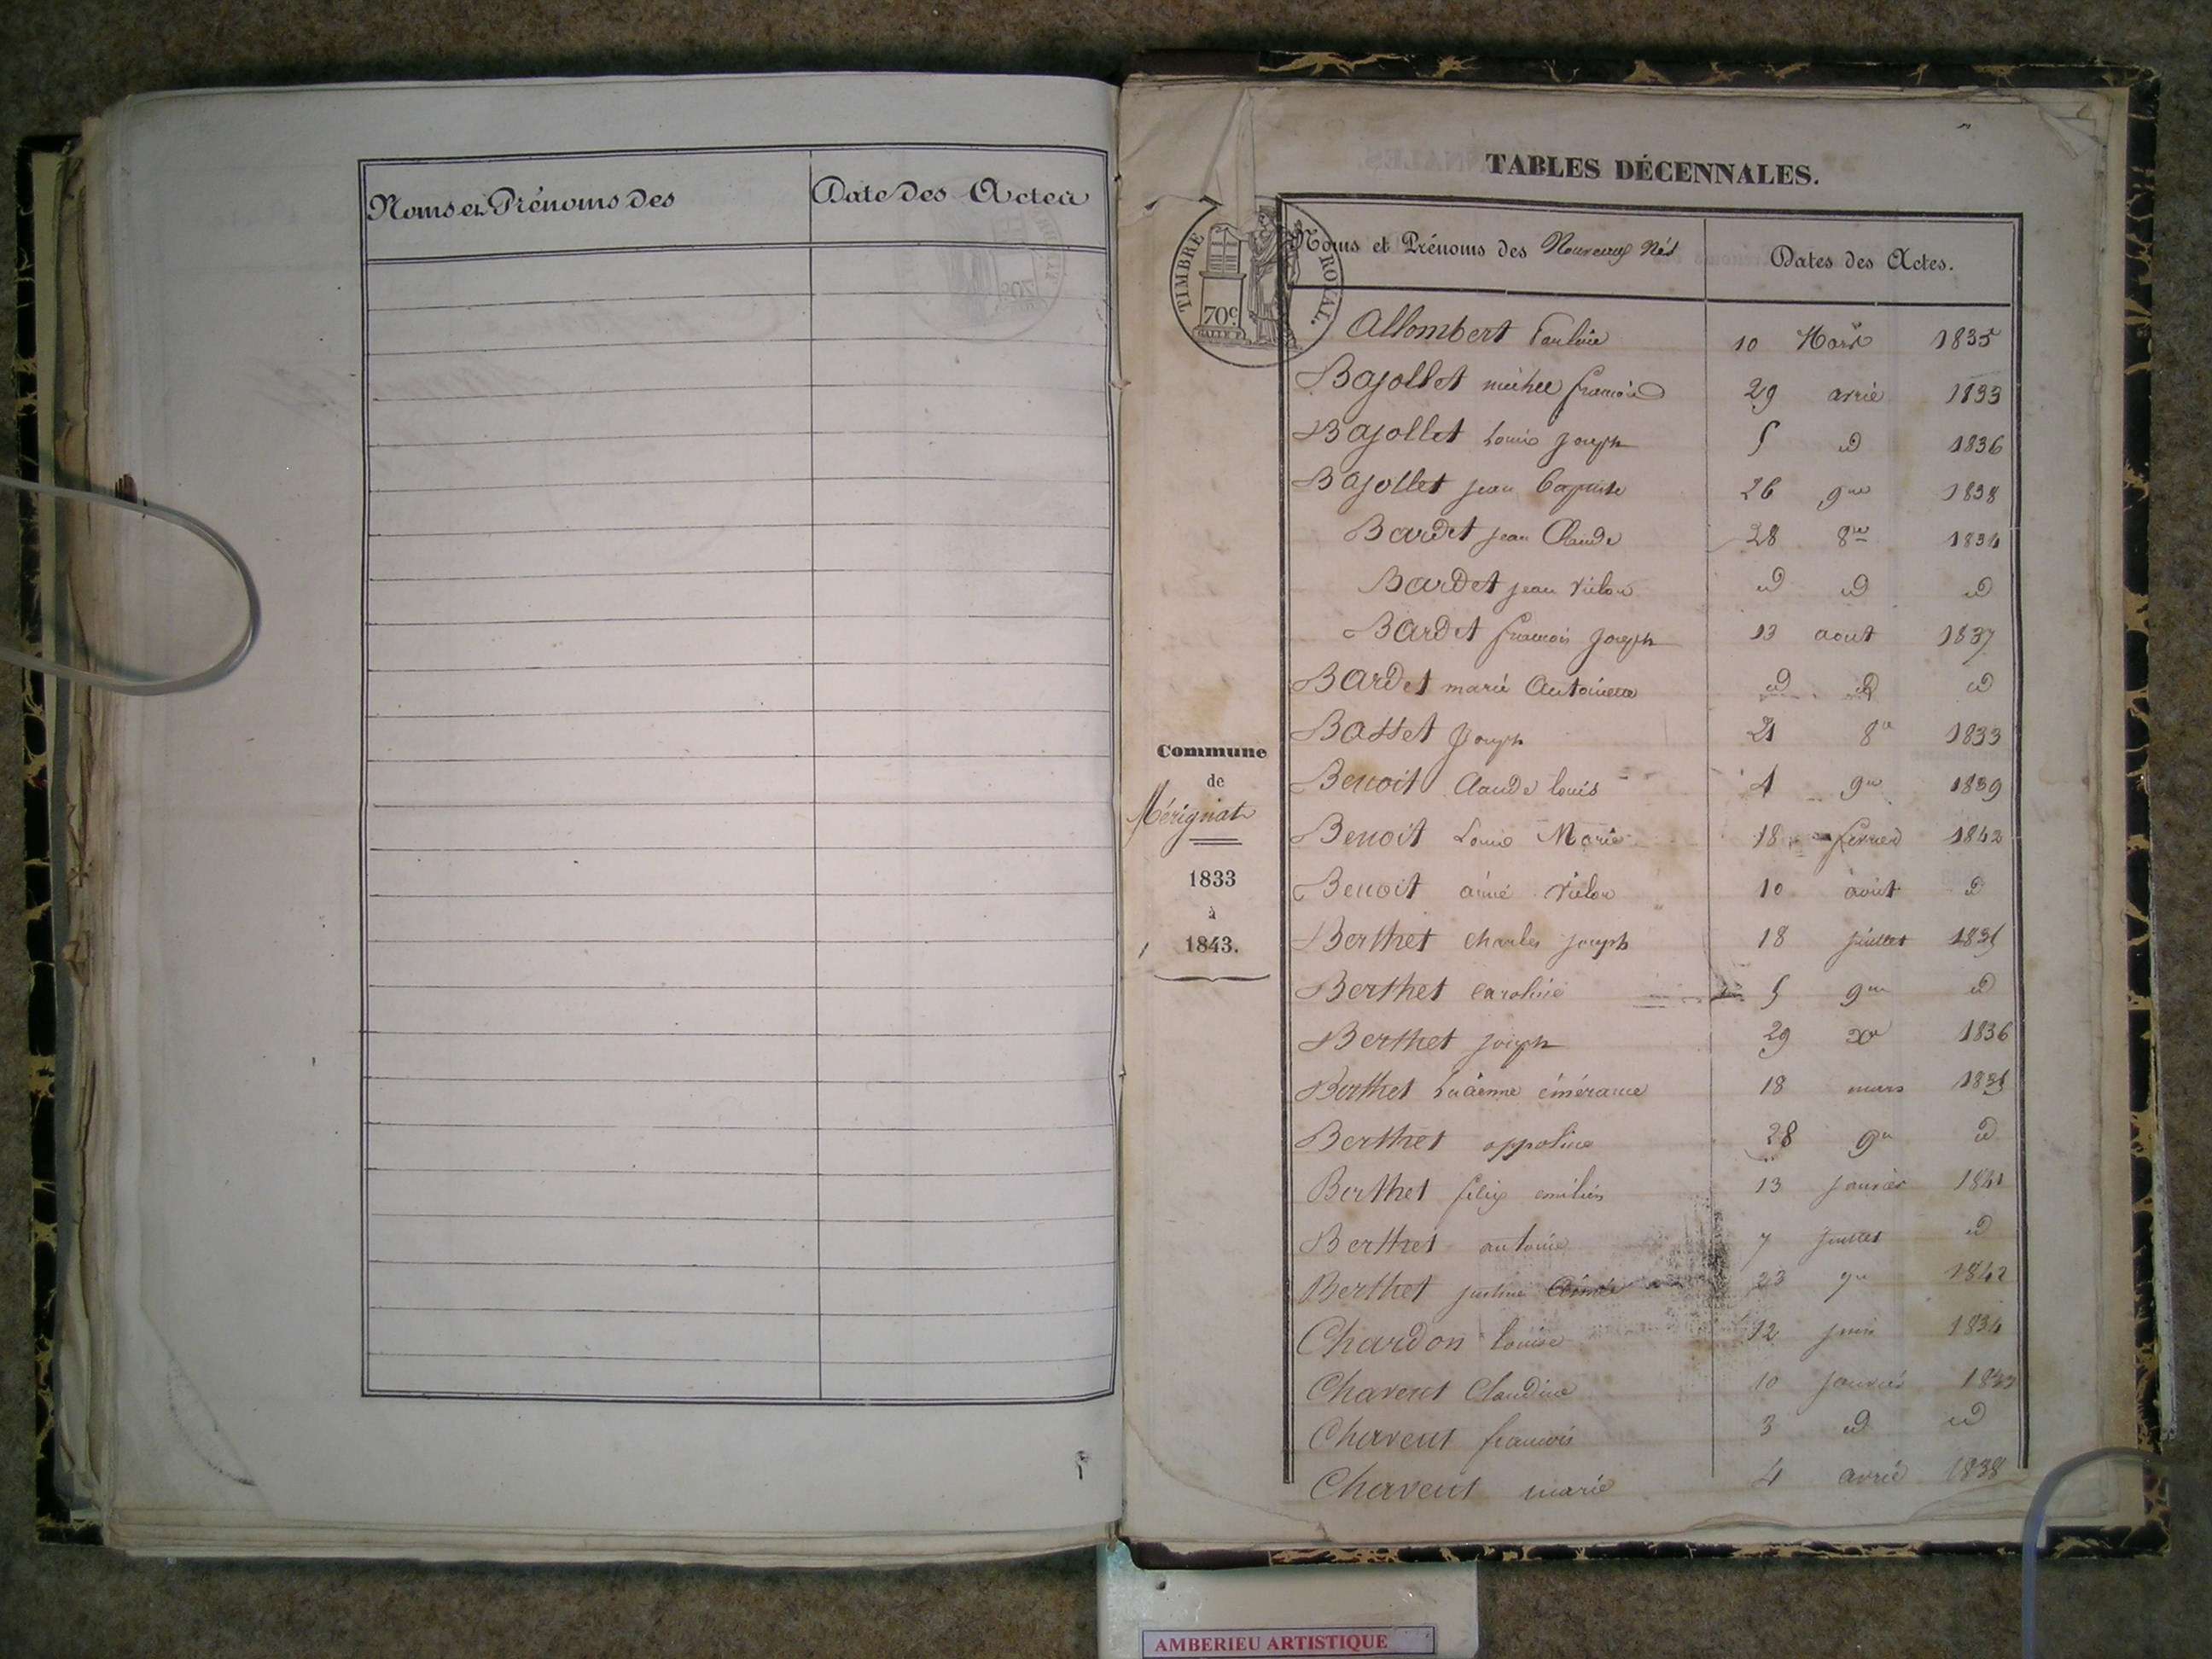 Noms et Prénoms des
Date des Actes
TABLES DÉCENNALES.
TIMBRE ROYAL.
70c
Noms et Prénoms des Nouveaux Nés
Dates des Actes.
Allombert Pauline 10 Mars 1835
Bajollet michel françois 29 avril 1833
Bajollet Louis Joseph 5 id 1836
Bajollet jean Baptiste 26 9bre 1838
Bardet jean Claude 28 8bre 1834
Bardet jean Victor id id id
Bardet françois Joseph 13 aout 1837
Bardet marie Antoinette id id id
Basset Joseph 21 8e 1833
Benoit Claude louis 4 9re 1839
Benoit Louis Marie 18 fevrier 1842
Benoit aimé Victor 10 aout id
Berthet charles joseph 18 juillet 1835
Berthet caroline 5 9re id
Berthet joseph 29 Xre 1836
Berthet Lucienne émérance 18 mars
Berthet appoline 28 9re id
Berthet felix emilien 13 janvier 1841
Berthet antoine 7 juillet id
Berthet justine 23 1842
Chardon louise 12 juin 1834
Chavent Claudine 10 janvier
Chavent francois 3 id id
Chavent marie 4 avril 1838
Commune
de
Mérignat
1833
à
1843.
AMBERIEU ARTISTIQUE